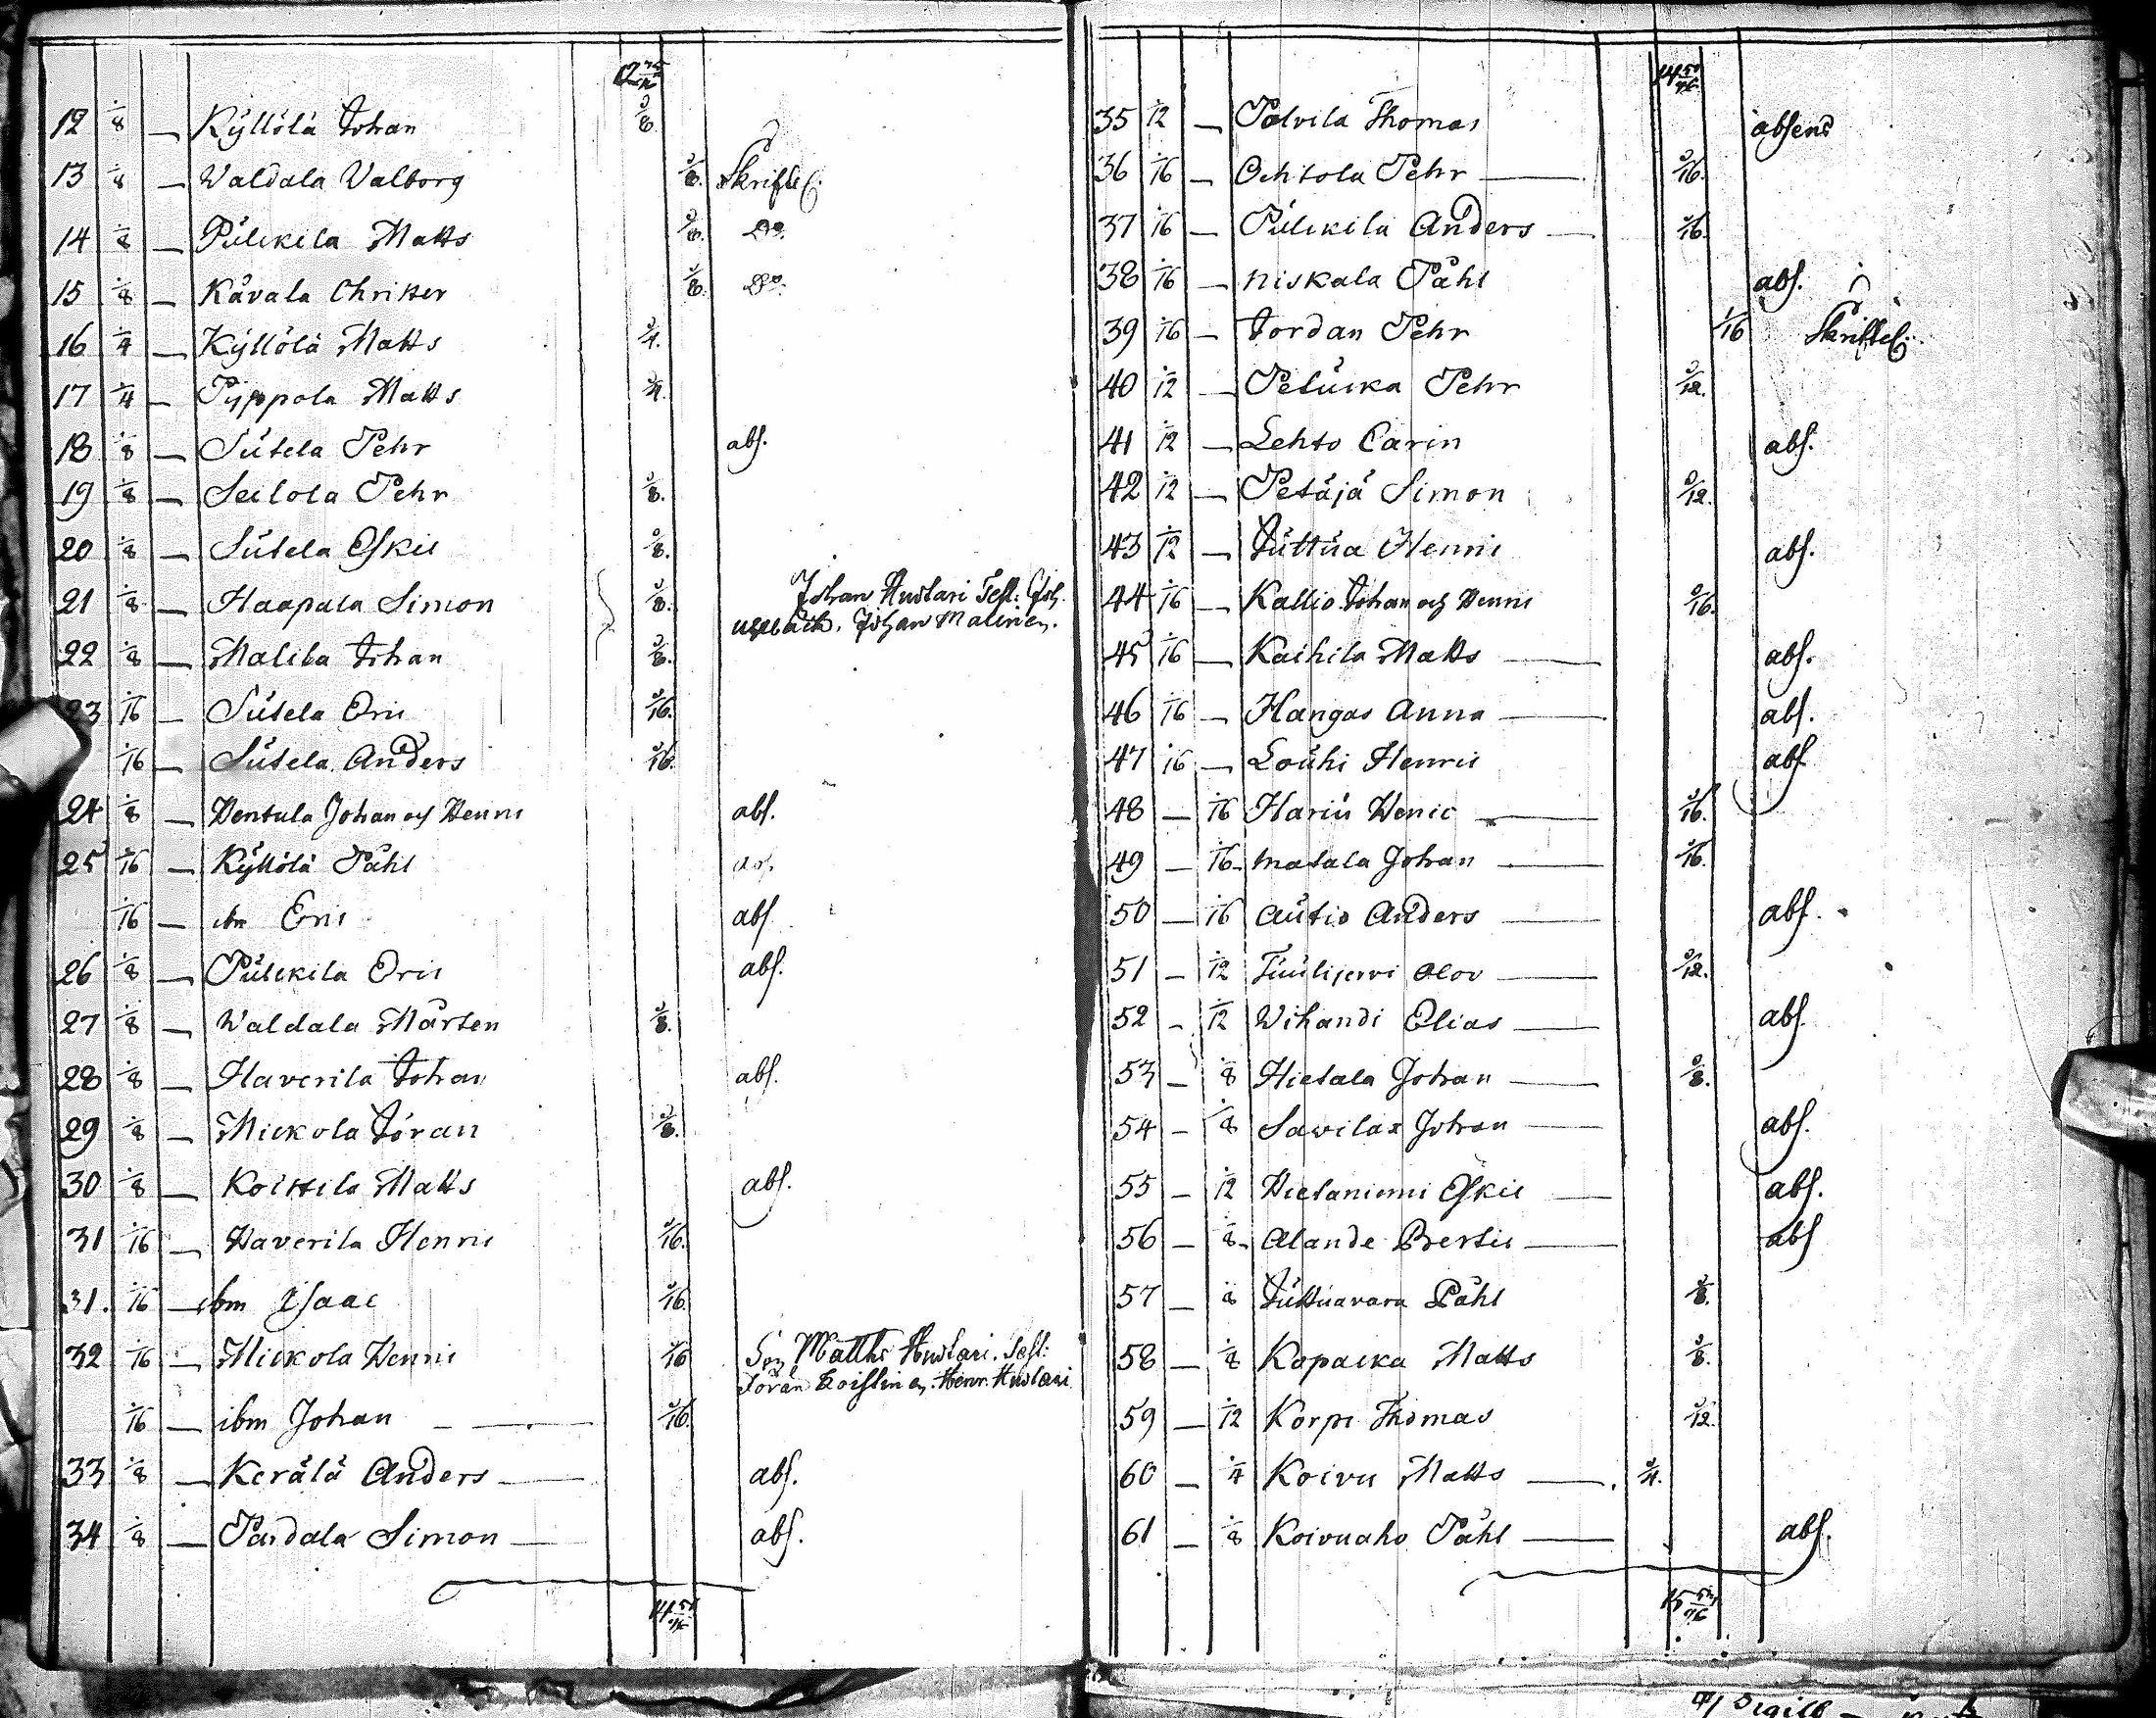 12 1/8 — Kyllölä Johan 1/8.
13 1/8 — Waldala Valborg 1/8. Skriftel.
14 1/8 — Pulckila Matts 1/8. Do.
15 1/8 — Kåvala Christer 1/8. Do.
16 1/4 — Kyllölä Matts 1/4.
17 1/4 — Pyppola Matts 1/4.
18 1/8 — Sutela Pehr abs.
19 1/8 — Seilola Pehr 1/8.
20 1/8 — Sutela Eskil 1/8.
21 1/8 — Haapala Simon 1/8. Johan Huotari Test:
22 1/8 — Malila Johan 1/8. Johan Malinen.
23 1/16 — Sutela Eric 1/16.
1/16 — Sutela Anders 1/16.
24 1/8 — Hentula Johan och Henric abs.
25 1/16 — Kyllölä Påhl abs.
1/16 — ibm Eric abs.
26 1/8 — Pulckila Eric abs.
27 1/8 — Waldala Mårten 1/8.
28 1/8 — Haverila Johan abs.
29 1/8 — Mickola Jöran 1/8.
30 1/8 — Koistila Matts abs.
31 1/16 — Haverila Henric 1/16.
31. 1/16 — ibm Isaac 1/16
32 1/16 — Mickola Henric 1/16 Matths Huotari. Test:
Jöran Koistinen. Henr. Huotari
1/16 — ibm Johan — 1/16.
33 1/8 — Kerälä Anders — abs.
34 1/8 — Pardala Simon — abs.
14 51/96
14 51/96
35 1/12 — Polvila Thomas absens
36 1/16 — Ochtola Pehr — 1/16.
37 1/16 — Pulckila Anders — 1/16.
38 1/16 — Niskala Påhl abs.
39 1/16 — Jordan Pehr 1/16 Skriftel.
40 1/12 — Petucka Pehr 1/12.
41 1/12 — Lehto Carin abs.
42 1/12 — Petäjä Simon 1/12.
43 1/12 — Juttua Henric abs.
44 1/16 — Kallio Johan och Henric 1/16.
45 1/16 — Kaihila Matts — abs.
46 1/16 — Hangas Anna — abs.
47 1/16 — Louhi Henric abs.
48 — 1/16 Hariu Henric — 1/16.
49 — 1/16 Matala Johan — 1/16.
50 — 1/16 Autio Anders — abs.
51 — 1/12 Tuulijervi Olov — 1/12.
52 — 1/12 Wihandi Elias — abs.
53 — 1/8 Hietala Johan — 1/8.
54 — 1/8 Sawilax Johan — abs.
55 — 1/12 Hietaniemi Eskil — abs.
56 — 1/8 Alande Bertil — abs
57 — 1/8 Juttuavara Påhl 1/8.
58 — 1/8 Kapacka Matts 1/8.
59 — 1/12 Korpi Thomas 1/12.
60 — 1/4 Koivu Matts — 1/4.
61 — 1/8 Koivuaho Påhl — abs.